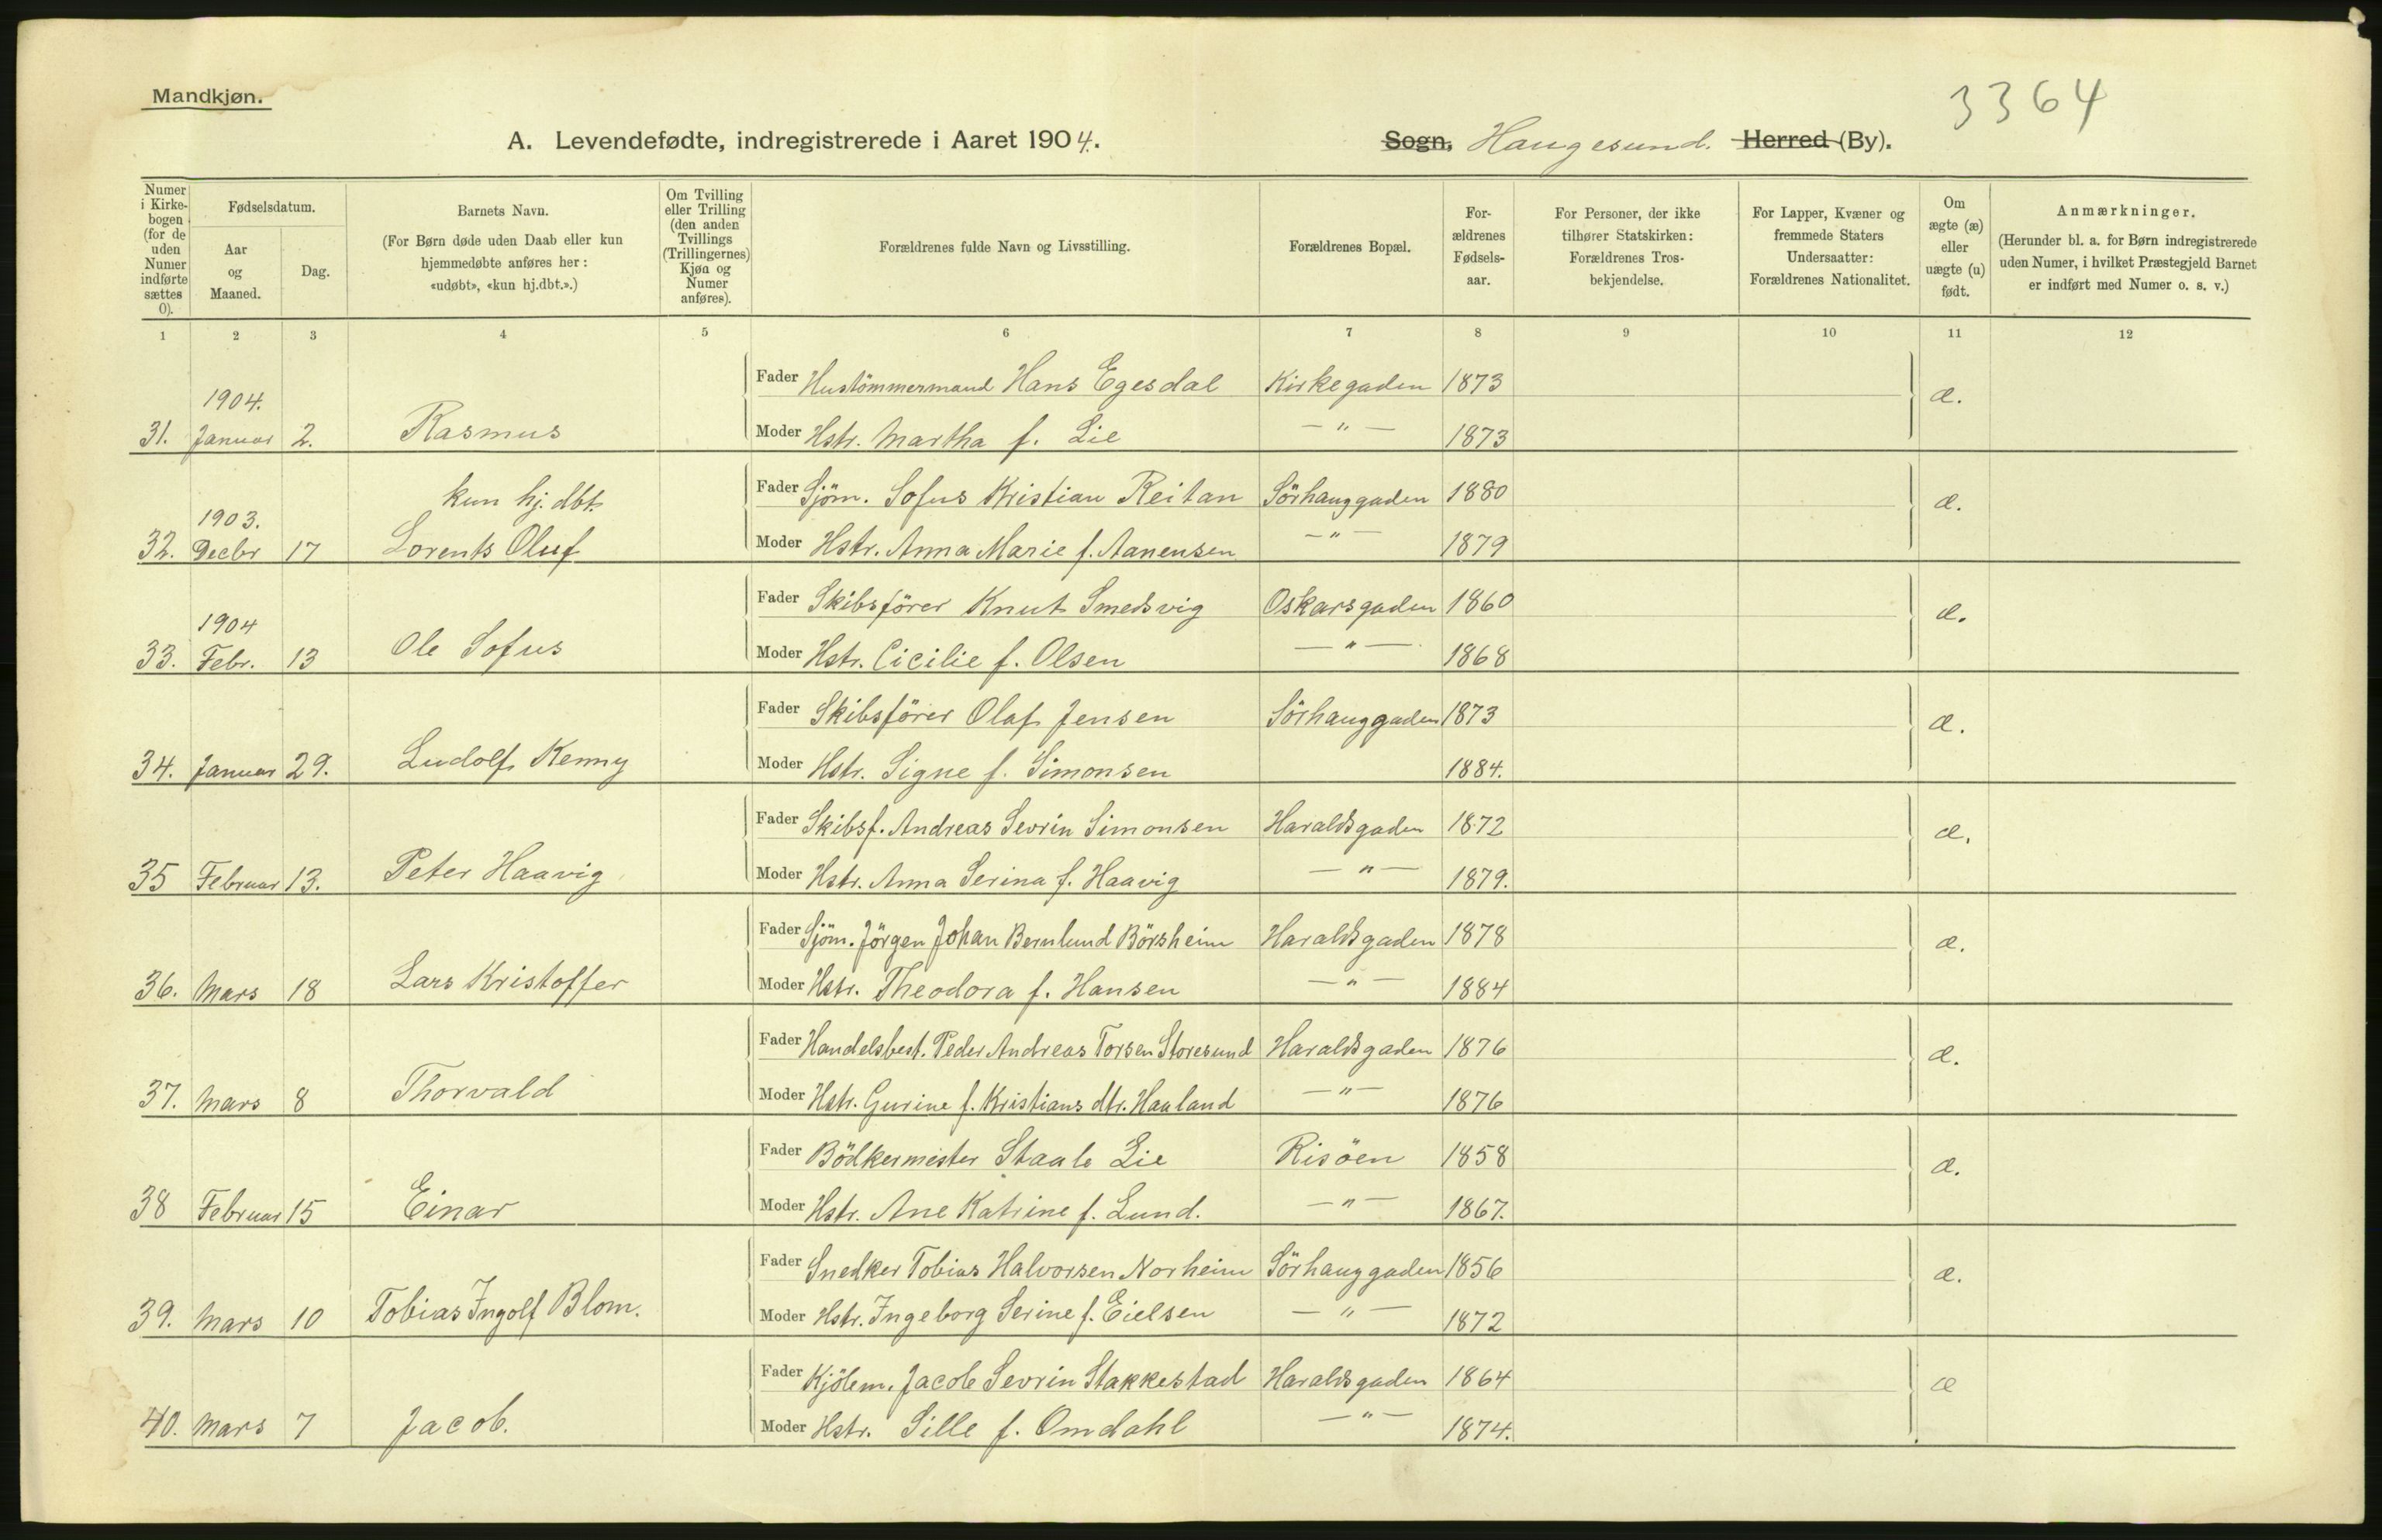 Mandkjøn.
3364
A. Levendefødte, indregistrerede i Aaret 1904.
Sogn, Haugesund. Herred (By).
Numer i Kirkebogen (for de uden Numer indførte sættes 0).
Fødselsdatum.
Aar og Maaned.
Dag.
Barnets Navn.
(For Børn døde uden Daab eller kun hjemmedøbte anføres her: «udøbt», «kun hj.dbt.».)
Om Tvilling eller Trilling (den anden Tvillings (Trillingernes) Kjøn og Numer anføres).
Forældrenes fulde Navn og Livsstilling.
Forældrenes Bopæl.
For-ældrenes Fødsels-aar.
For Personer, der ikke tilhører Statskirken: Forældrenes Tros-bekjendelse.
For Lapper, Kvæner og fremmede Staters Undersaatter: Forældrenes Nationalitet.
Om ægte (æ) eller uægte (u) født.
Anmærkninger.
(Herunder bl. a. for Børn indregistrerede uden Numer, i hvilket Præstegjeld Barnet er indført med Numer o. s. v.)
1 2 3 4 5 6 7 8 9 10 11 12
Fader Hustömmermand Hans Egesdal Kirkegaden 1873
1904. æ.
31. Januar 2. Rasmus Moder Hstr. Martha f. Lie — " — 1873
kun hj. dbt. Fader Sjöm. Sofus Kristian Reitan Sörhauggaden 1880
1903. æ.
32. Decbr 17 Lorents Oluf Moder Hstr. Anna Marie f. Aanensen — " — 1879
Fader Skibsförer Knut Smedsvig Oskarsgaden 1860
1904 æ.
33. Febr. 13 Ole Sofus Moder Hstr. Cicilie f. Olsen — " — 1868
Fader Skibsförer Olaf Jensen Sörhauggaden 1873
æ.
34. Januar 29. Ludolf Kenny Moder Hstr. Signe f. Simonsen 1884.
Fader Skibsf. Andreas Sevrin Simonsen Haraldsgaden 1872
æ.
35 Februar 13. Peter Haavig Moder Hstr. Anna Serina f. Haavig — " — 1879.
Fader Sjöm. Jörgen Johan Bernlund Börsheim Haraldsgaden 1878
æ.
36. Mars 18 Lars Kristoffer Moder Hstr. Theodora f. Hansen — " — 1884
Fader Handelsbest. Peder Andreas Torsen Storesund Haraldsgaden 1876
æ.
37. Mars 8 Thorvald Moder Hstr. Gurine f. Kristians dtr. Haaland — " — 1876
Fader Bödkermester Staale Lie Risöen 1858
æ.
38 Februar 15 Einar Moder Hstr. Ane Katrine f. Lund. — " — 1867.
Fader Snedker Tobias Halvorsen Norheim Sörhauggaden 1856
æ.
39. Mars 10 Tobias Ingolf Blom. Moder Hstr. Ingeborg Serine f. Eielsen — " — 1872
Fader Kjölem. Jacob Sevrin Stakkestad Haraldsgaden 1864
æ
40. Mars 7 Jacob. Moder Hstr. Sille f. Omdahl — " — 1874.